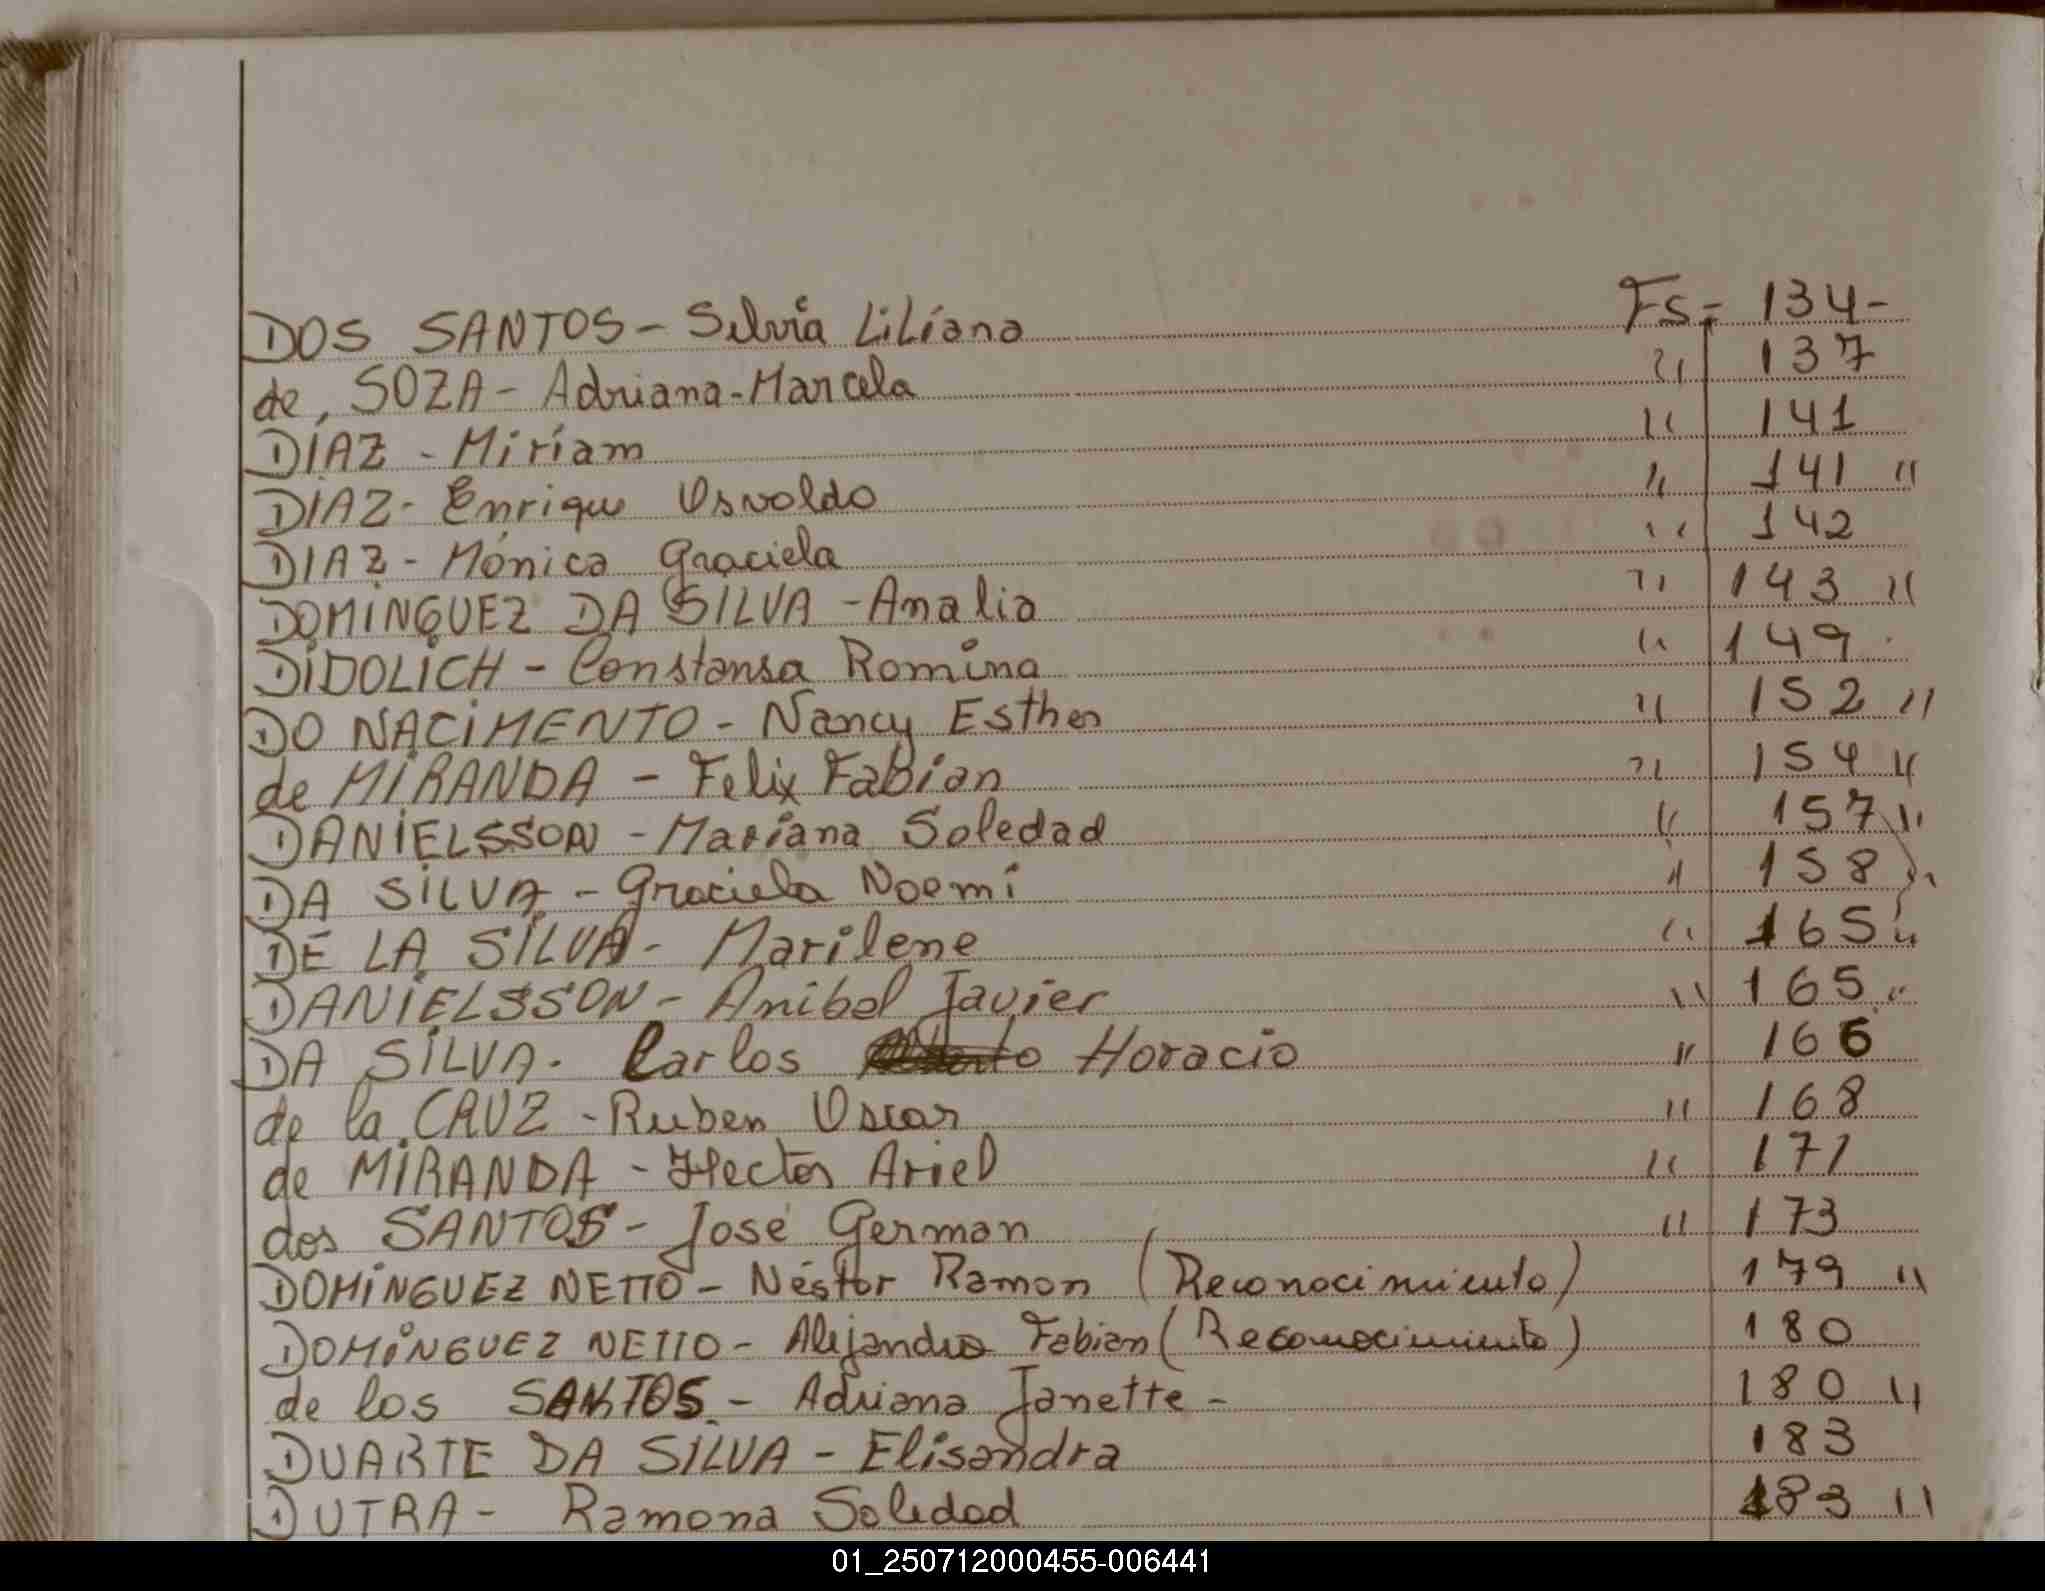 DOS SANTOS - Silvia Liliana Fs- 134-
de SOZA - Adriana-Marcela " 137
DÍAZ - Miriam " 141
DIAZ - Enrique Osvaldo " 141 "
DIAZ - Mónica Graciela " 142
DOMINGUEZ DA SILVA - Analia " 143 "
DIDOLICH - Constansa Romina " 149
DO NACIMENTO - Nancy Esther " 152 "
de MIRANDA - Felix Fabian " 154 "
DANIELSSON - Mariana Soledad " 157 "
DA SILVA - Graciela Noemi " 158 "
DE LA SILVA - Marilene " 165 "
DANIELSSON - Anibal Javier " 165 "
DA SILVA - Carlos Horacio " 166
de la CRUZ - Ruben Oscar " 168
de MIRANDA - Hector Ariel " 171
dos SANTOS - José German " 173
DOMINGUEZ NETTO - Néstor Ramon (Reconocimiento) 179 "
DOMINGUEZ NETTO - Alejandro Fabian (Reconocimiento) 180
de los SANTOS - Adriana Janette - 180 "
DUARTE DA SILVA - Elisandra 183
DUTRA - Ramona Soledad 183 "
01_250712000455-006441